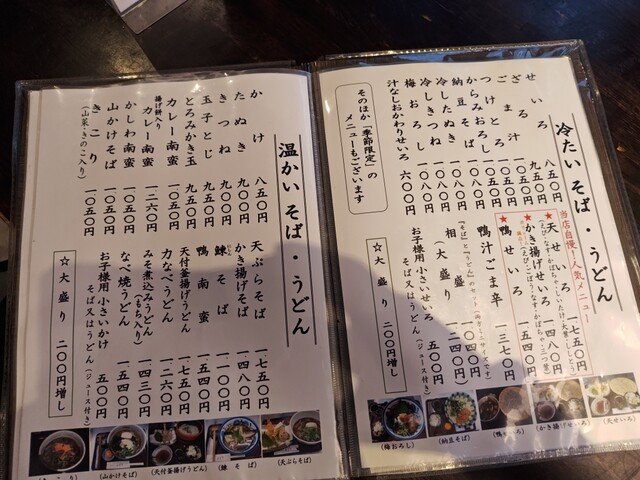 冷たい そば・うどん
せいろ 八五〇円
ざる 九五〇円
ごま汁 九五〇円
つけとろ 一〇五〇円
からみおろし 一〇五〇円
納豆そば 一〇八〇円
冷したぬき 一〇八〇円
冷しきつね 一〇八〇円
梅おろし 一〇八〇円
汁なしおかわりせいろ 六〇〇円
そのほか「季節限定」の
メニューもございます
当店自慢!人気メニュー
★天せいろ 一七五〇円
★かき揚げせいろ 一四八〇円
★鴨せいろ 一五四〇円
鴨汁ごま辛 一三七〇円
相盛 一五〇〇円
(大盛り 二〇〇円)
お子様用 小さいせいろ 五〇〇円
そば又はうどん(ジュース付き)
☆大盛り 二〇〇円増し
(梅おろし)
(納豆そば)
(鴨せいろ)
(かき揚げせいろ)
(天せいろ)
温かい そば・うどん
かけ 八五〇円
たぬき 九〇〇円
きつね 九〇〇円
玉子とじ 九五〇円
とろみかき玉 九五〇円
カレー南蛮 一〇五〇円
揚げ餅入り
カレー南蛮 一二六〇円
かしわ南蛮 一〇五〇円
山かけそば 一〇五〇円
きこり 一〇五〇円
(山菜・きのこ入り)
天ぷらそば 一七五〇円
かき揚げそば 一四八〇円
鰊そば 一一〇〇円
鴨南蛮 一五四〇円
天付釜揚げうどん 一七五〇円
力なべうどん 一二六〇円
みそ煮込みうどん 一四三〇円
(もち入り)
なべ焼うどん 一五四〇円
お子様用 小さいかけ 五〇〇円
そば又はうどん(ジュース付き)
☆大盛り 二〇〇円増し
(山かけそば)
(天付釜揚げうどん)
(鰊そば)
(天ぷらそば)